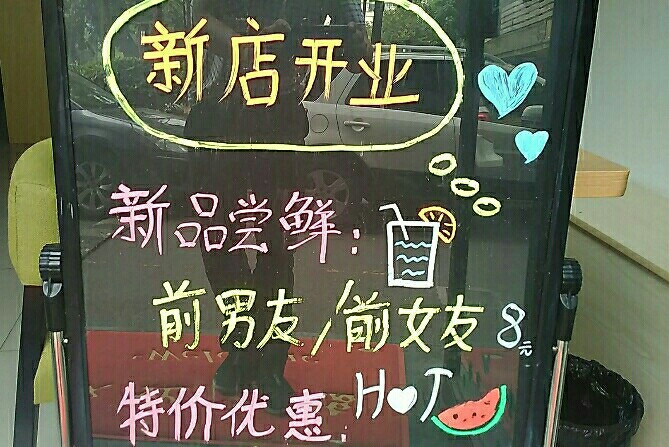 新店开业
新品尝鲜:
前男友/前女友 8元
特价优惠: HOT